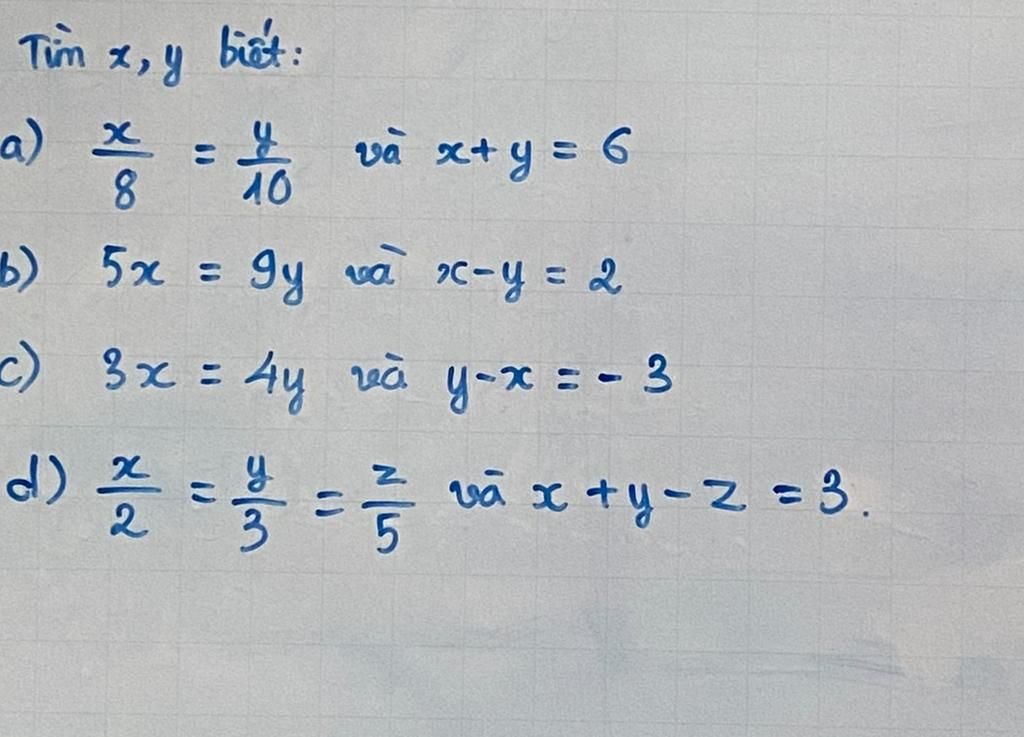 Tìm x, y biết:
a) x/8 = y/10 và x+y = 6
b) 5x = 9y và x-y = 2
c) 3x = 4y và y-x = -3
d) x/2 = y/3 = z/5 và x+y-z = 3.